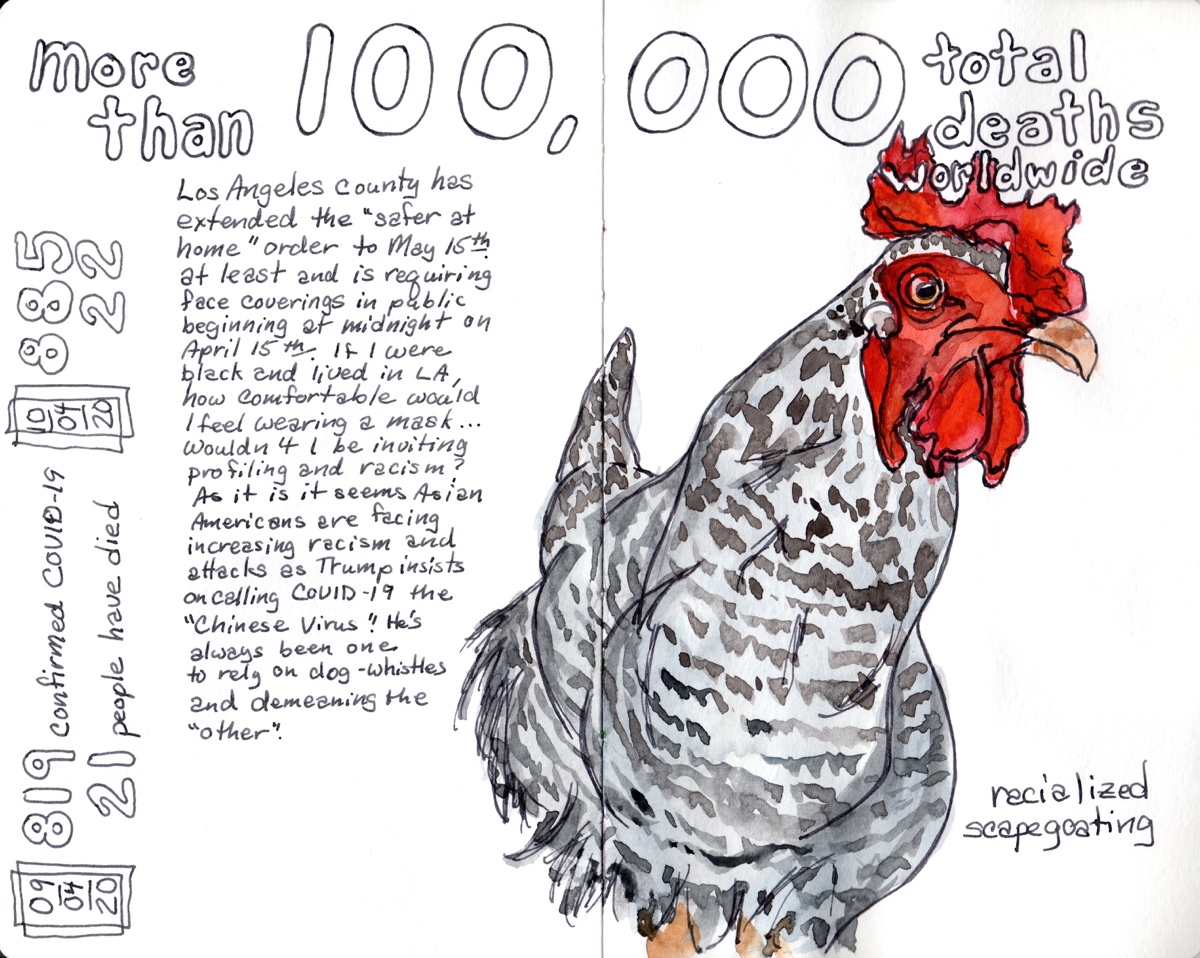 more
than
100,000
total
deaths
worldwide
Los Angeles County has
extended the "safer at
home" order to May 15th
at least and is requiring
face coverings in public
beginning at midnight on
April 15th. If I were
black and lived in LA,
how comfortable would
I feel wearing a mask...
wouldn't I be inviting
profiling and racism?
As it is it seems Asian
Americans are facing
increasing racism and
attacks as Trump insists
on calling COVID-19 the
"Chinese Virus". He's
always been one
to rely on dog-whistles
and demeaning the
"other".
09/04/20
819 confirmed COVID-19
21 people have died
10/04/20
885
22
racialized
scapegoating